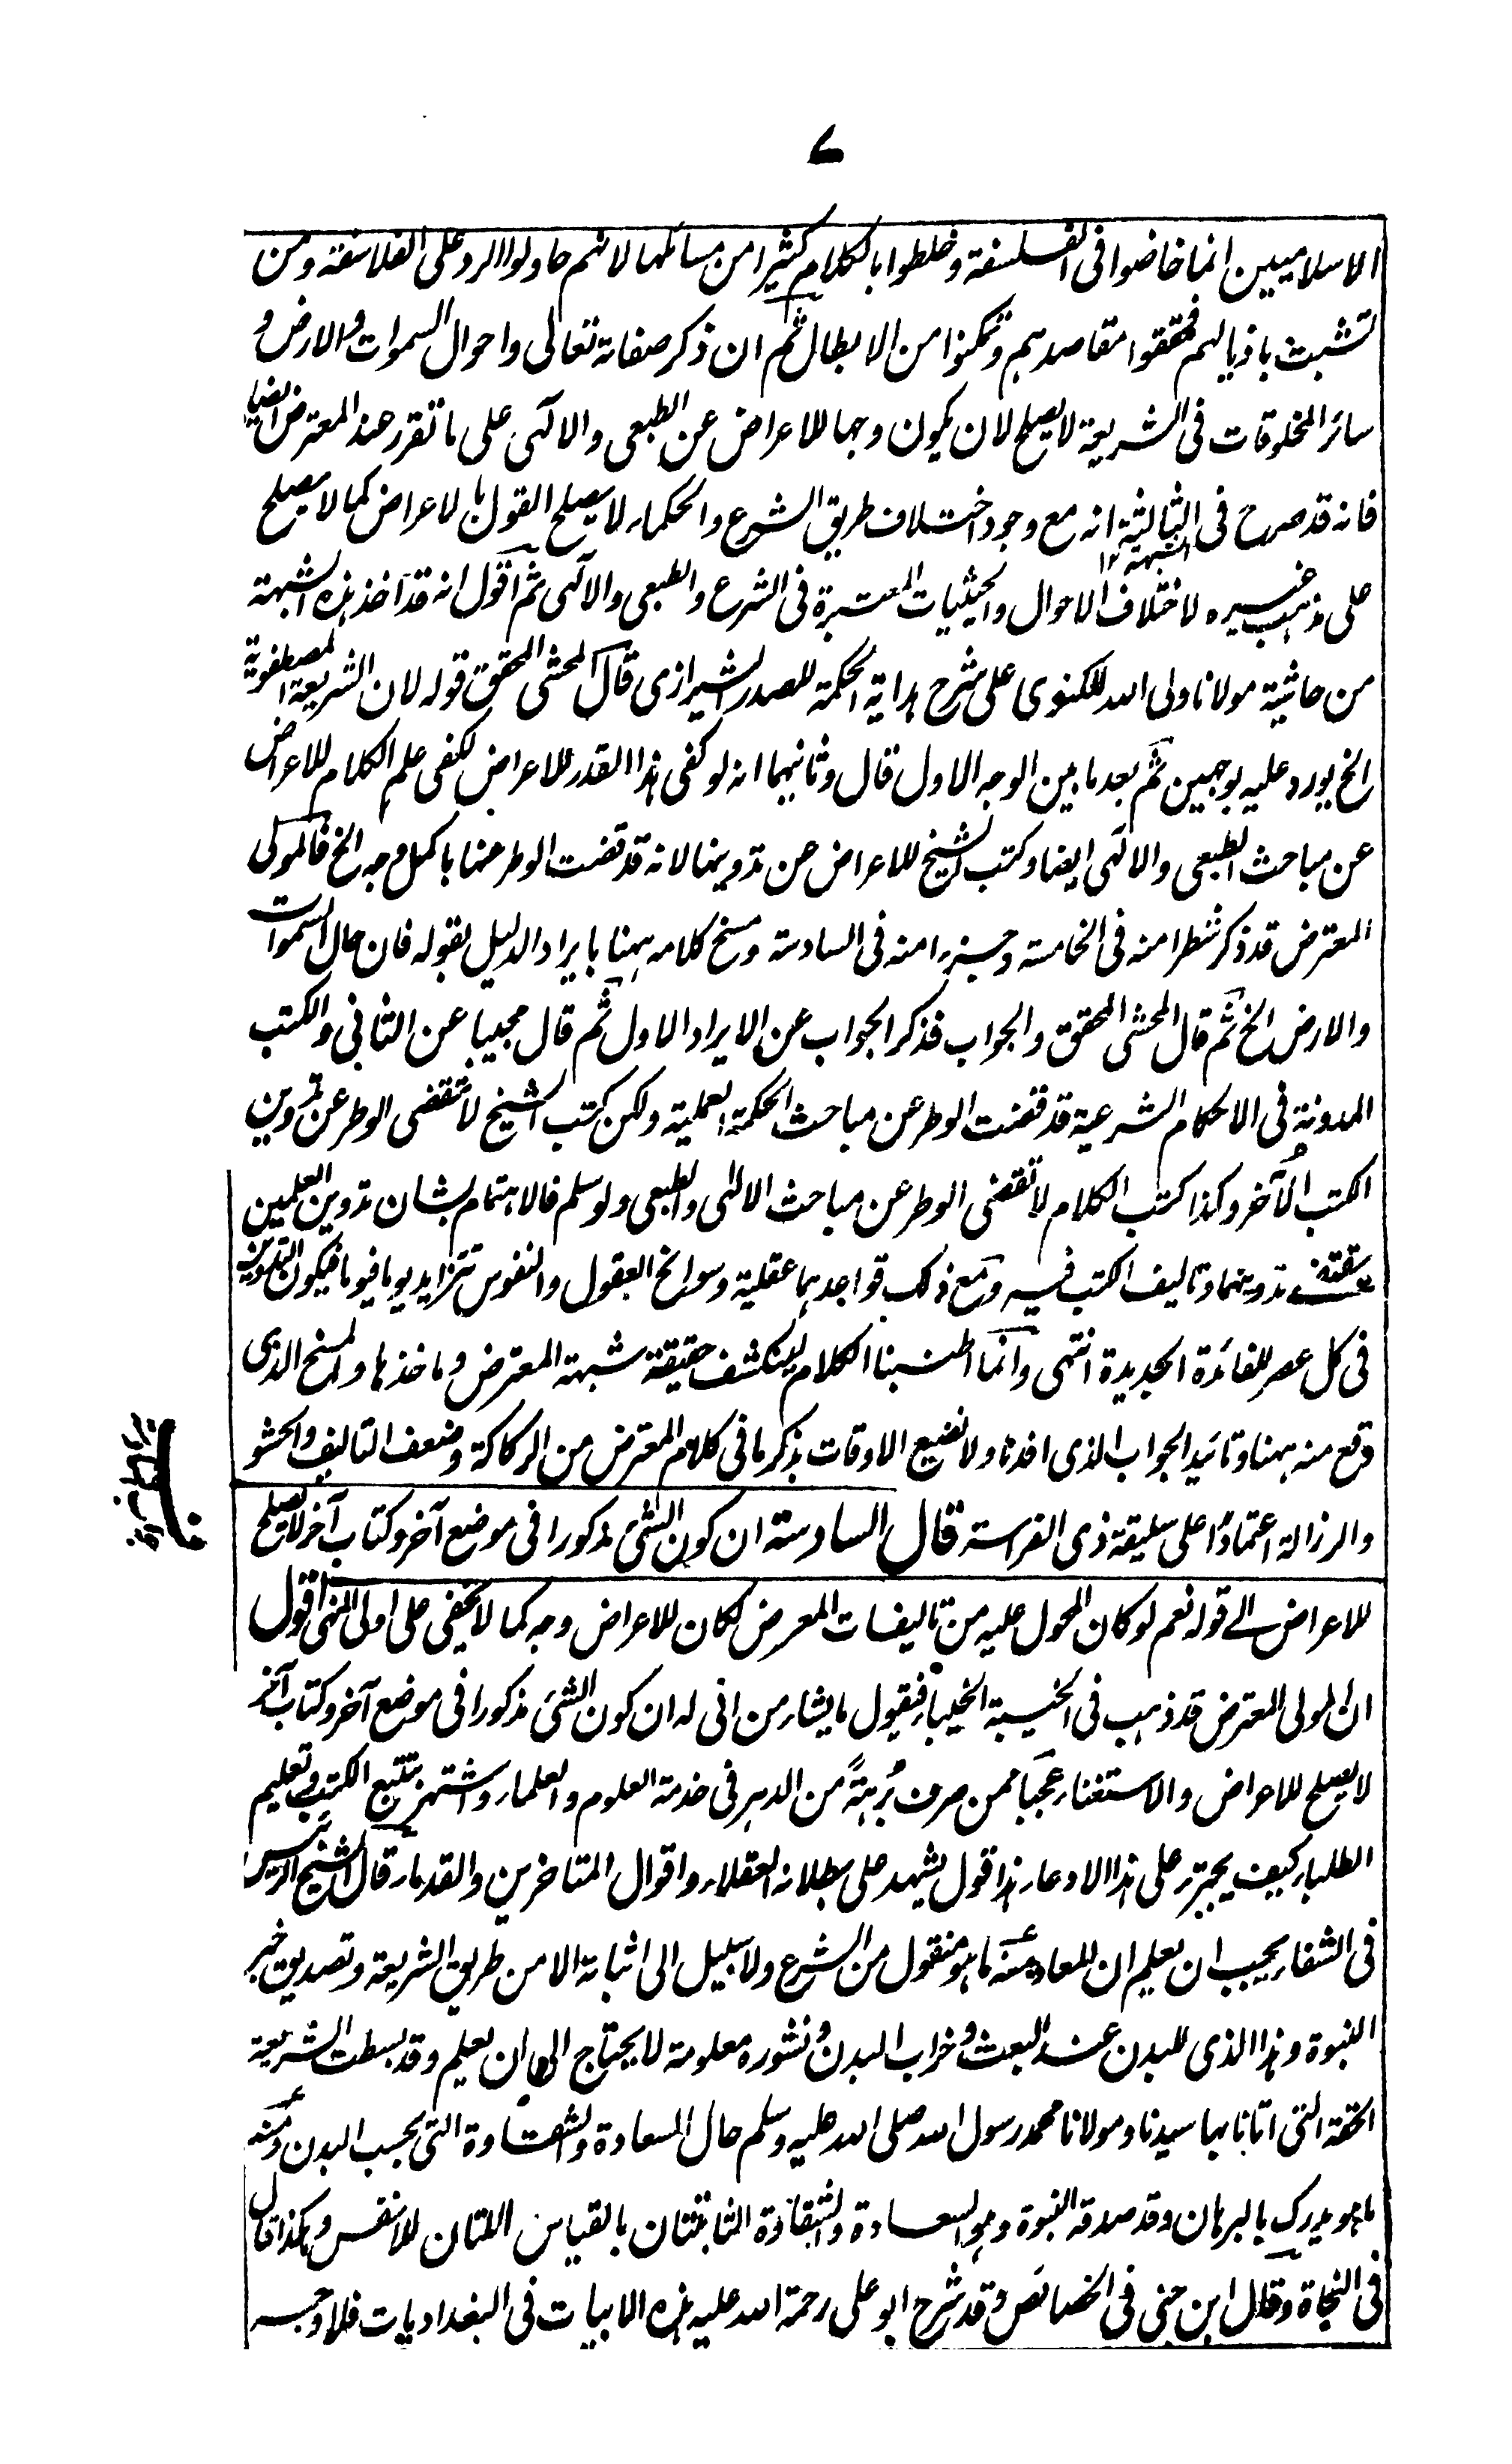 ٧
الاسلاميين انما خاضوا فى الفلسفة وخلطوا بالكلام كثيرا من مسائلها لانهم حاولوا الرد على الفلاسفة ومن
تشبث باذيالهم فحققوا مقاصدهم وتمكنوا من الابطال ثم ان ذكر صفاته تعالى واحوال السموات والارض و
سائر المخلوقات فى الشريعة لا يصلح لان يكون وجها للاعراض عن الطبعى والالٰهى على ما تقرر عند المعترض ايضا
فانه قد صرح فى الثالثة انه مع وجود اختلاف طريق الشرع والحكماء لا يصلح القول بالاعراض كما لا يصلح
الشبهة ١٢
على مذهب غيره لاختلاف الاحوال والحيثيات المعتبرة فى الشرع والطبعى والالٰهى ثم اقول انه قد اخذ هذه الشبهة
من حاشية مولانا ولى الله اللكنوى على شرح هداية الحكمة للصدر الشيرازى قال المحشى المحقق قوله لان الشريعة المصطفوية
الخ يورد عليه بوجهين ثم بعد ما بين الوجه الاول قال وثانيهما انه لو كفى هذا القدر للاعراض لكفى علم الكلام للاعراض
عن مباحث الطبعى والالٰهى ايضا وكتب الشيخ للاعراض عن تدوينها لانه قد قضت الوطر عنها باكمل وجه الخ فالمولى
المعترض قد ذكر شطرا منه فى الخامسة وجزءا منه فى السادسة ومسخ كلامه ههنا بايراد الدليل بقوله فان حال السموات
والارض الخ ثم قال المحشى المحقق والجواب فذكر الجواب عن الايراد الاول ثم قال مجيبا عن الثانى والكتب
المدونة فى الاحكام الشرعية قد قضت الوطر عن مباحث الحكمة العملية ولكن كتب الشيخ لا تقضى الوطر عن تدوين
الكتب الآخر وكذا كتب الكلام لا تقضى الوطر عن مباحث الالٰهى والطبعى ولو سلم فالاهتمام بشان تدوين العلمين
يقتضى تدوينهما وتاليف الكتب فيه ومع ذلك قواعدهما عقلية وسوانح العقول والنفوس تتزايد يوما فيوما فيكون التدوين
فى كل عصر للفائدة الجديدة انتهى وانما اطنبنا الكلام لينكشف حقيقة شبهة المعترض وماخذها والمسخ الذى
وقع منه ههنا وتائيد الجواب الذى افدنا ولا نضيع الاوقات بذكر ما فى كلام المعترض من الركاكة وضعف التاليف والحشو
والرزالة اعتمادًا على سليقة ذى الفراسة قال السادسة ان كون الشئ مذكورا فى موضع آخر وكتاب آخر لا يصلح
للاعراض الى قوله نعم لو كان المحول عليه من تاليفات المعرض لكان للاعراض وجه كما لا يخفى على اولى النهى اقول
ان المولى المعترض قد ذهب فى الخيبة الخيباء فيقول ما يشاء من انى له ان كون الشئ مذكورا فى موضع آخر وكتاب آخر
لا يصلح للاعراض والاستغناء عجبًا ممن صرف بُرهةً من الدهر فى خدمة العلوم والعلماء واشتهر بتتبع الكتب وتعليم
الطلباء كيف يجترء على هذا الادعاء هذا قول يشهد على بطلانه العقلاء واقوال المتاخرين والقدماء قال الشيخ الرئيس
فى الشفاء يجب ان يعلم ان للمعاد منه ما هو منقول من الشرع ولا سبيل الى اثباته الا من طريق الشريعة وتصديق خبر
النبوة وهذا الذى للبدن عند البعث وخراب البدن ونشوره معلومة لا يحتاج الى ان يعلم وقد بسطت الشريعة
الحقة التى اتانا بها سيدنا ومولانا محمد رسول الله صلى الله عليه وسلم حال السعادة والشقاوة التى بحسب البدن ومنه
ما هو يدرك بالبرهان وقد صدقه النبوة وهو السعادة والشقاوة الثابتتان بالقياس اللتان للانفس وهكذا قال
فى النجاة وقال ابن جنى فى الخصائص وقد شرح ابو على رحمة الله عليه هذه الابيات فى البغداديات فلا وجه